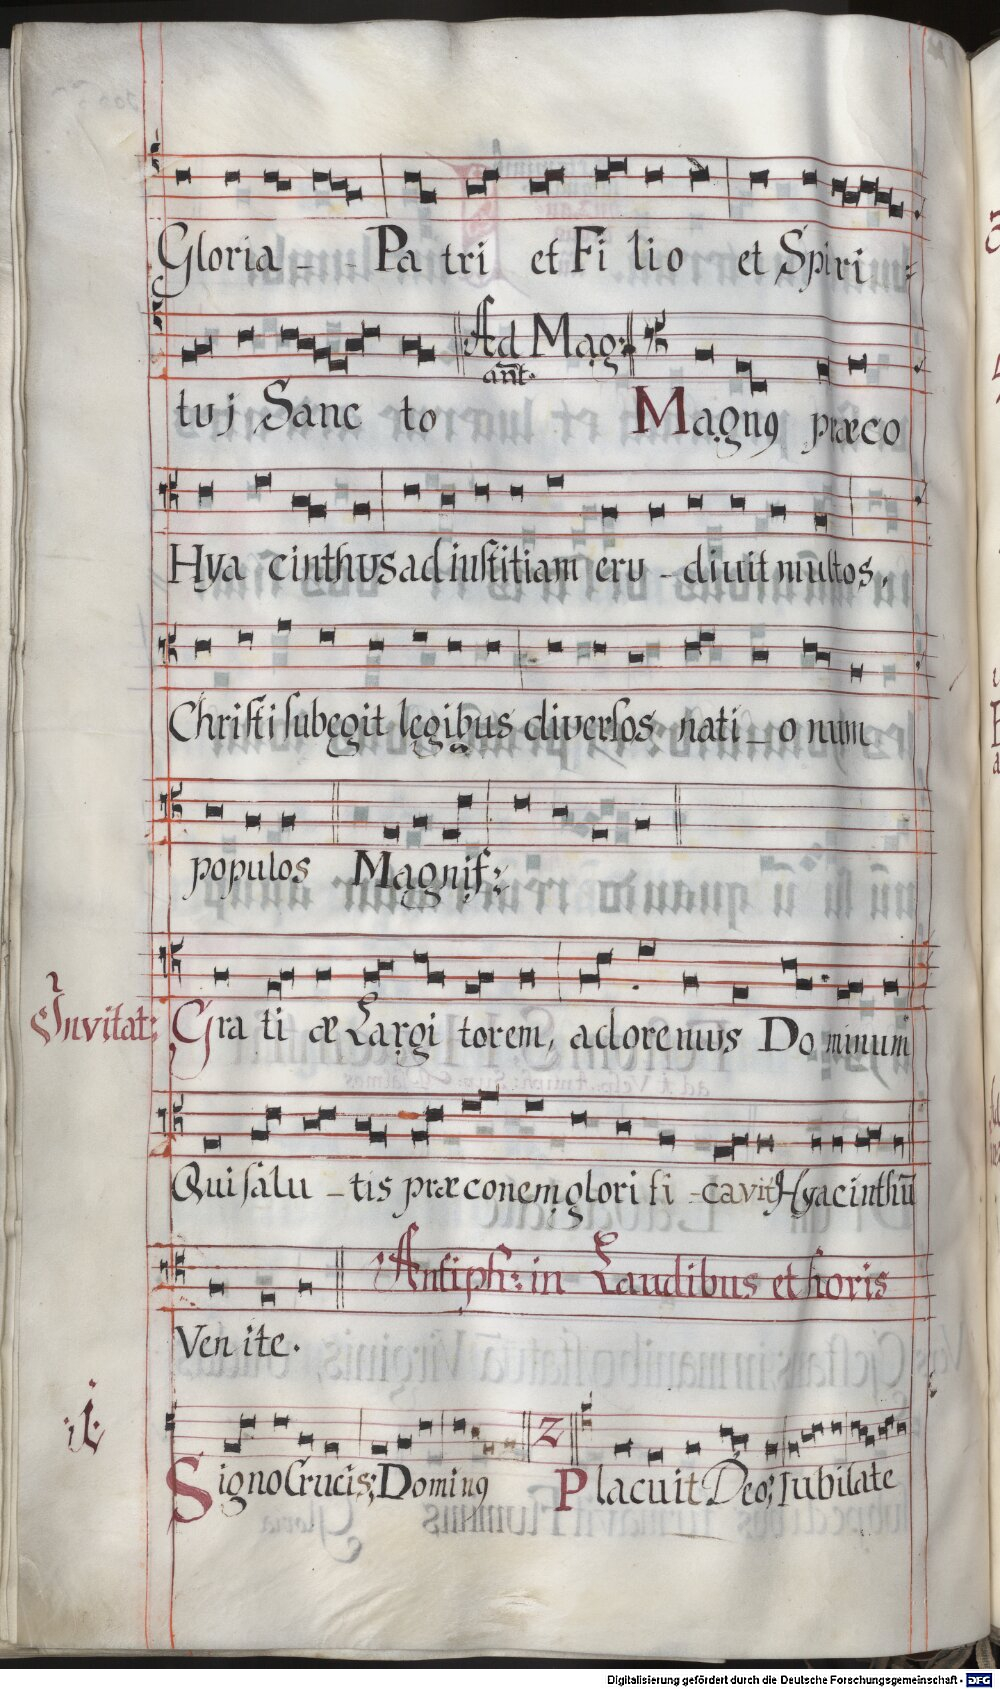 Gloria - - Pa tri et Fi lio et Spiri =
Ad Mag:
ant.
tuj Sanc to Magnꝰ præco
Hya cinthus ad iustitiam eru - diuit multos,
Christi subegit legibus diversos nati - o num
populos Magnif:
Invitat: Gra ti æ Largi torem, adoremus Do minum
Qui salu - tis præconem glori fi - cavit Hyacinthū
Antiph: in Laudibus et horis
Ven ite.
1 Signo Crucis; Dominꝰ 2 Placuit Deo; Iubilate
Digitalisierung gefördert durch die Deutsche Forschungsgemeinschaft - DFG